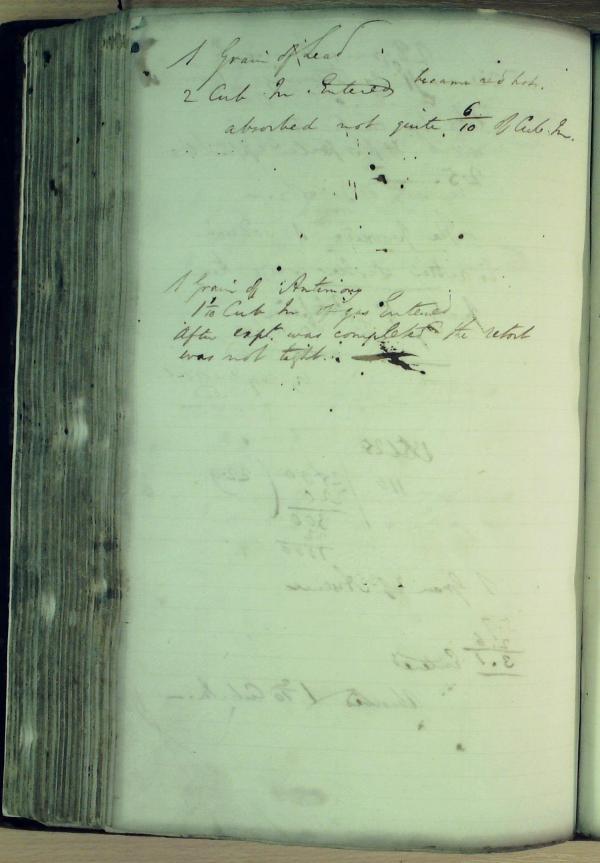 1 Grain of Lead
2 Cub In Entered became red hot.
absorbed not quite 6/10 of Cub. In.
1 Grain of Antimony
Cub In of gas Entered
After expt. was completed the retort
was not tight.